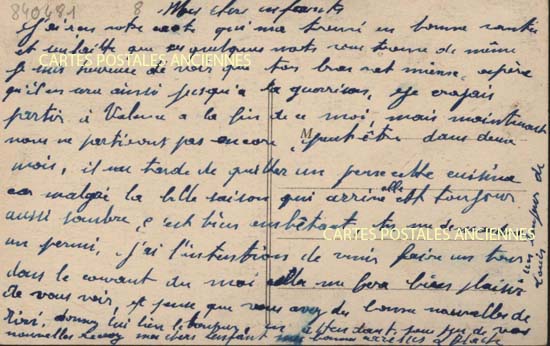 840481 8 Mes chers enfants
J'ai reçu votre carte qui m'a trouvé en bonne santé
et souhaite que ces quelques mots vous trouve de même
Je suis heureuse de voir que ton bras va mieux, espère
CARTES POSTALES ANCIENNES
qu'il en sera ainsi jusqu'à la guérison, je croyais
partir à Valence à la fin de ce mois, mais maintenant
nous ne partirons pas encore, peut être dans deux
mois, il me tarde de quitter un peu cette cuisine
car malgré la belle saison qui arrive elle est toujours
aussi sombre, c'est bien embêtant
CARTES POSTALES ANCIENNES
un permi, j'ai l'intentions de venir faire un tour
dans le courant du mois cela me fera bien plaisir
de vous voir, je pense que vous avez du bonnes nouvelles de
donnez lui bien le bonjour en attendant
nouvelles recevez mes chers enfants mes bonnes